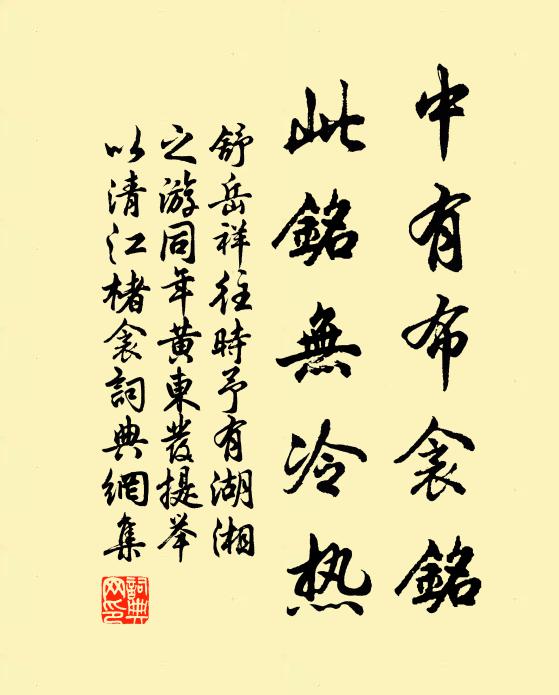 中有布衾銘
此銘無冷热
舒岳祥往時予有湖湘
之游同年黄東發提举
以清江楮衾詞典網集
詞典
网印